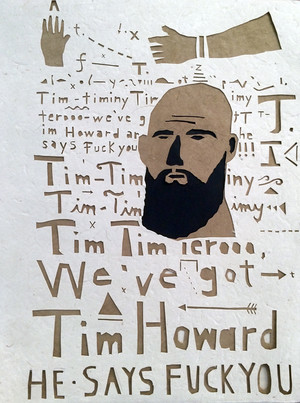 t. !x
T.
Tim-timiny Tim iny
terooo-we've g T T.
im Howard ar
says Fuckyou !!!
Tim-Tim iny
Tim-Tim imy
Tim Tim Terooo,
We've got
Tim Howard
HE·SAYS FUCKYOU